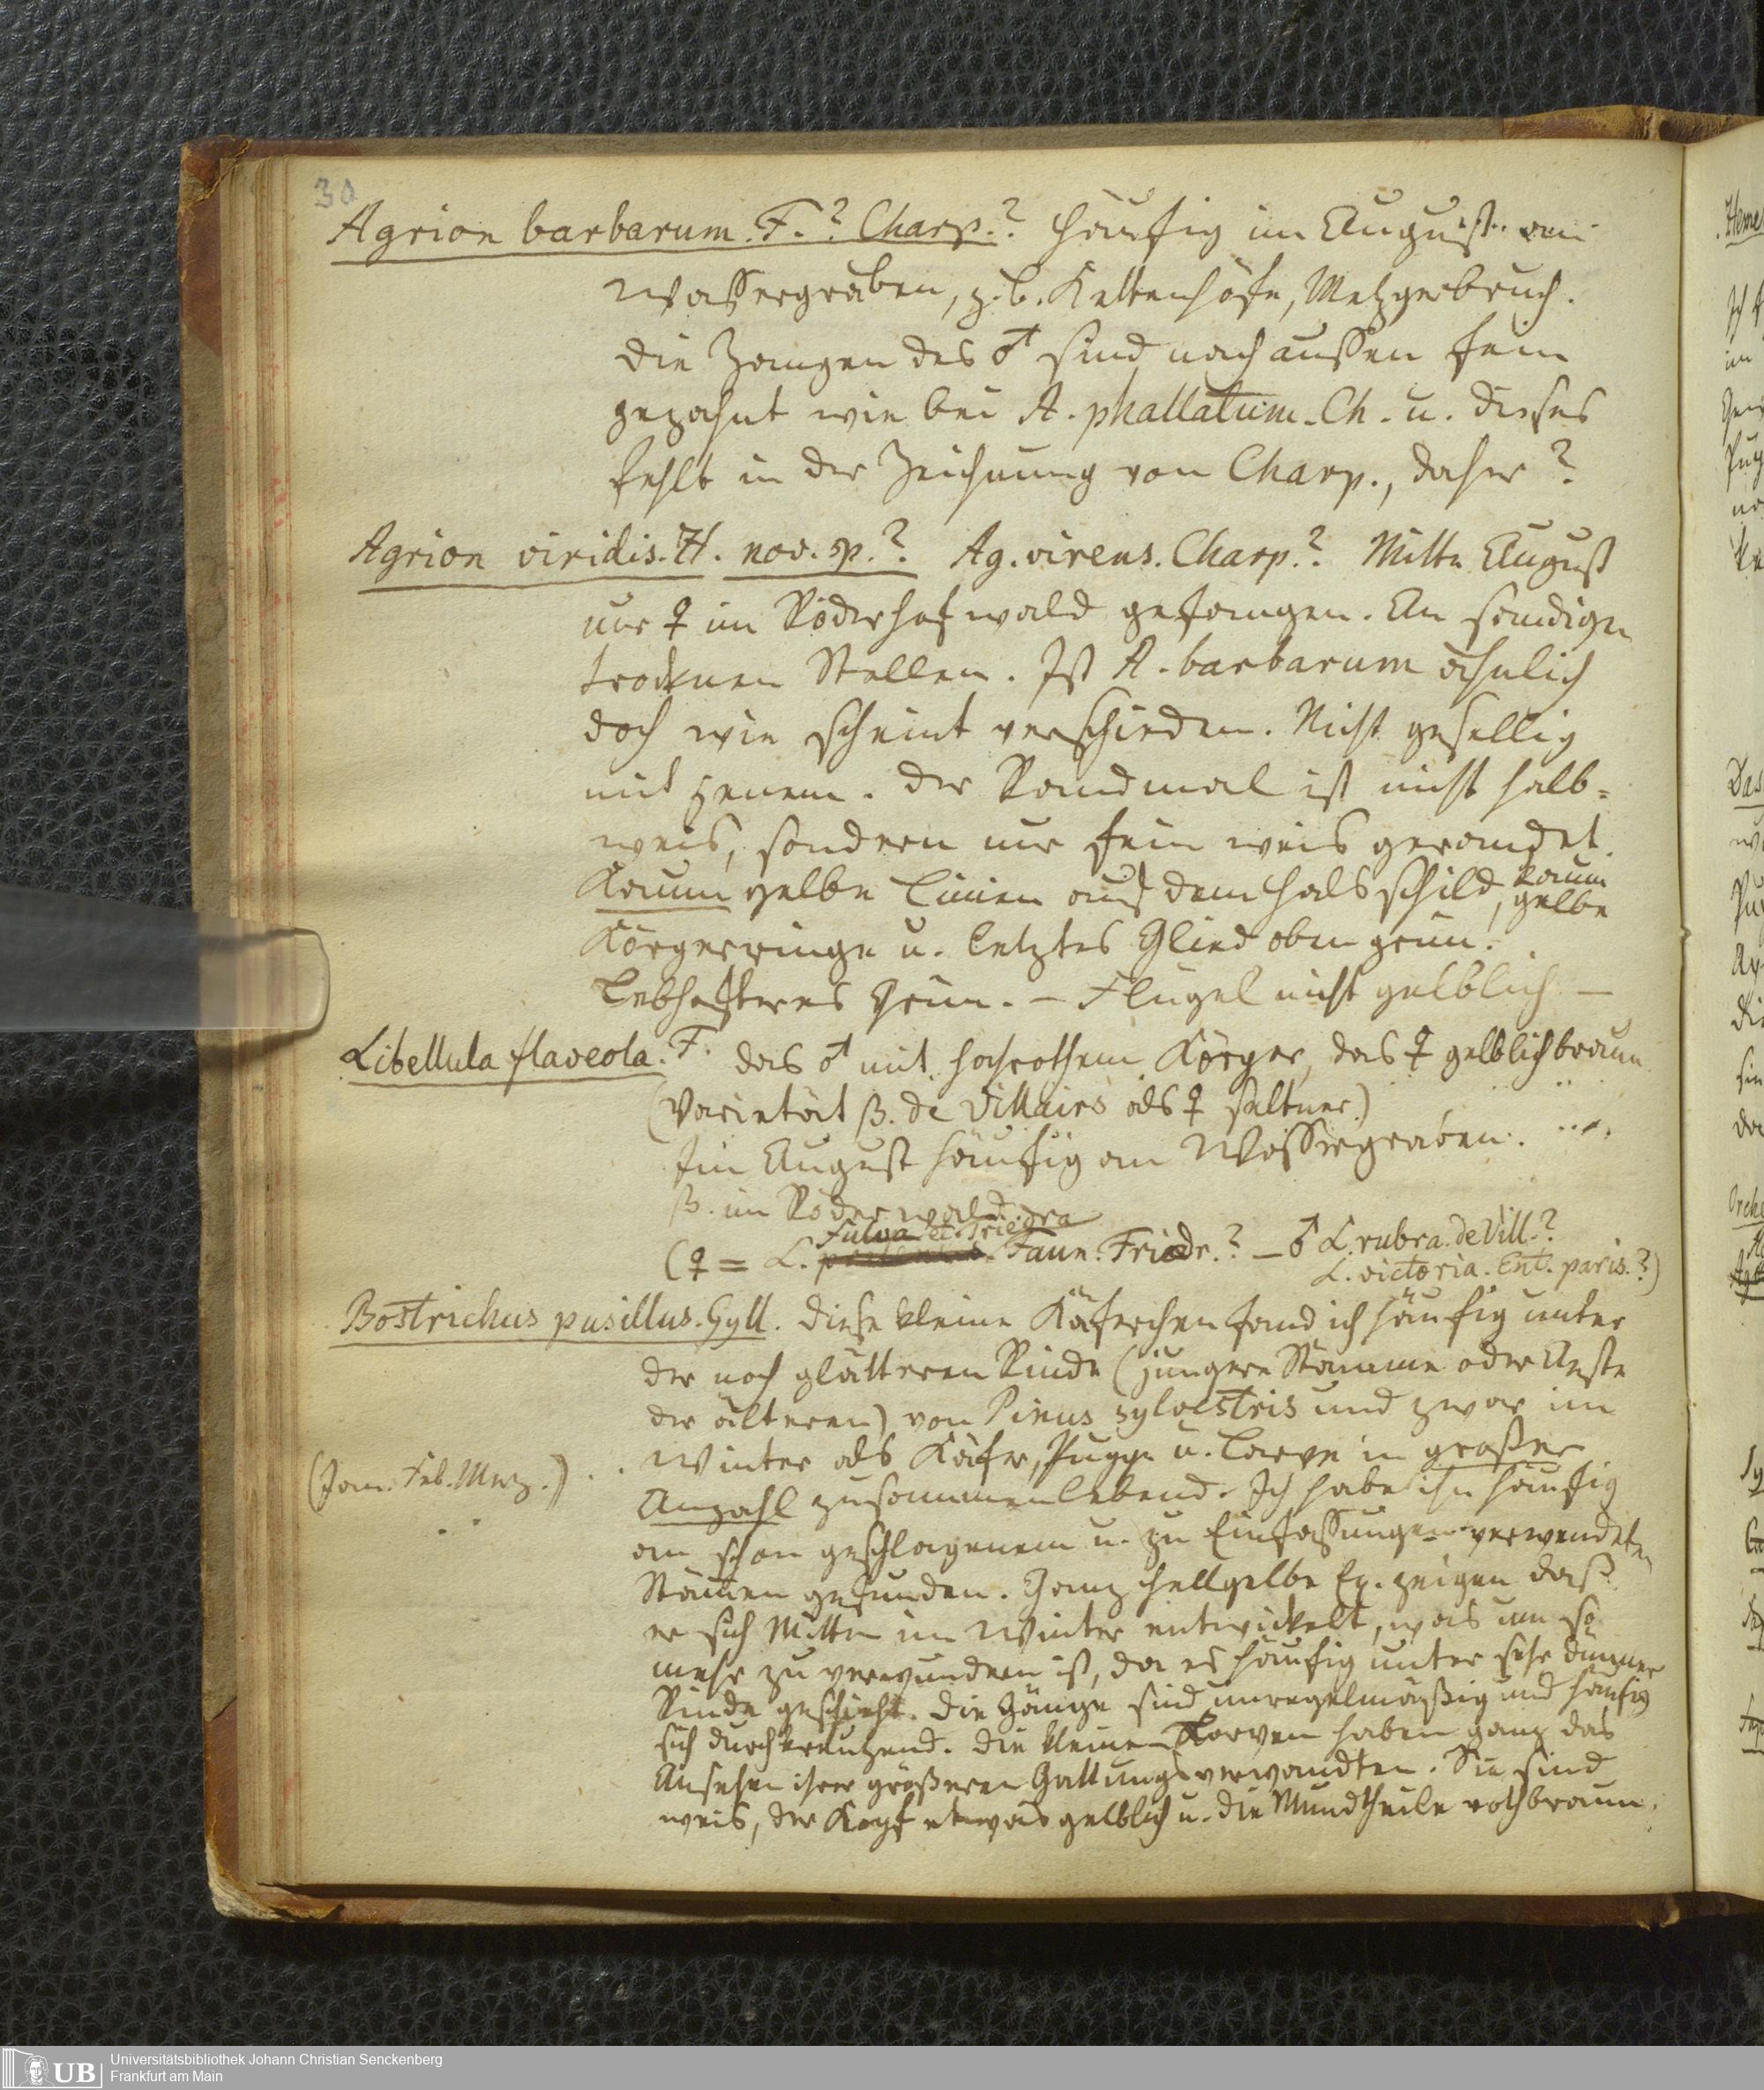 30
Agrion barbarum. F.? Charp.? Häufig im August. am
Wassergraben, z.b. Kettenhöfe, Metzgerbruch.
Die Zangen des ♂ sind nach aussen fein
gezahnt wie bei A. phallatum. Ch. u. dieses
fehlt in der Zeichnung von Charp., daher ?
Agrion viridis. H. nov. sp.? Ag. virens. Charp.? Mitte August
nur ♀ im Röderhofwald gefangen. An sandigen
trocknen Stellen. Ist A. barbarum ähnlich
doch wie scheint verschieden. Nicht gesellig
mit jenem. Der Randmal ist nicht halb-
weis, sondern nur fein weis gerandet.
Kaum gelbe Linien auf dem Halsschild, kaum gelbe
Körperringe u. letztes Glied oben grün.
Lebhafteres Grün. – Flügel nicht gelblich –
Libellula flaveola. F. das ♂ mit hochrothem Körper, das ♀ gelblichbraun
(Varietät ß. de Villairs als ♀ seltner.)
Im August häufig am Wassergraben.
ß. im Röderwald.
Fulva et Friedra
(♀ = L. Faun. Friedr.? – ♂ L. rubra. de Vill.?
L. victoria. Ent. paris.?)
Bostrichus pusillus. Gyll. Diese kleine Käferchen fand ich häufig unter
der noch glätteren Rinde (jüngere Stämme oder Aeste
der älteren) von Pinus sylvestris und zwar im
(Jan. Feb. Merz.) Winter als Käfer, Puppe u. Larve in großer
Anzahl zusammenlebend. Ich habe ihn häufig
an schon geschlagenem u. zu Einfassungen verwendeten
Stämen gefunden. Ganz hellgelbe Ex. zeigen daß
er sich Mitten im Winter entwickelt, was um so
mehr zu verwundern ist, da es häufig unter sehr dünner
Rinde geschieht. Die Gänge sind unregelmäßig und häufig
sich durchkreutzend. Die kleinen Larven haben ganz das
Ansehen ihrer größeren Gattungsverwandten. Sie sind
weis, der Kopf etwas gelblich u. die Mundtheile rothbraun.
UB
Universitätsbibliothek Johann Christian Senckenberg
Frankfurt am Main